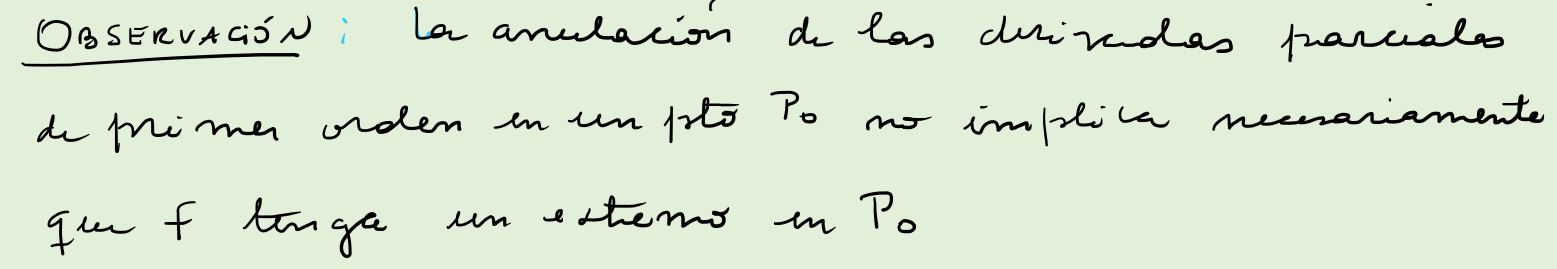 OBSERVACIÓN: La anulación de las derivadas parciales
de primer orden en un pto P₀ no implica necesariamente
que f tenga un extremo en P₀